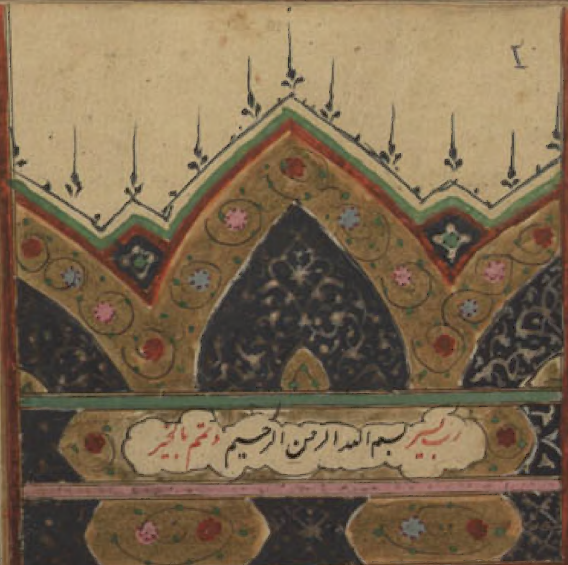 ٢
رب یسر بسم الله الرحمن الرحیم و تمم بالخیر